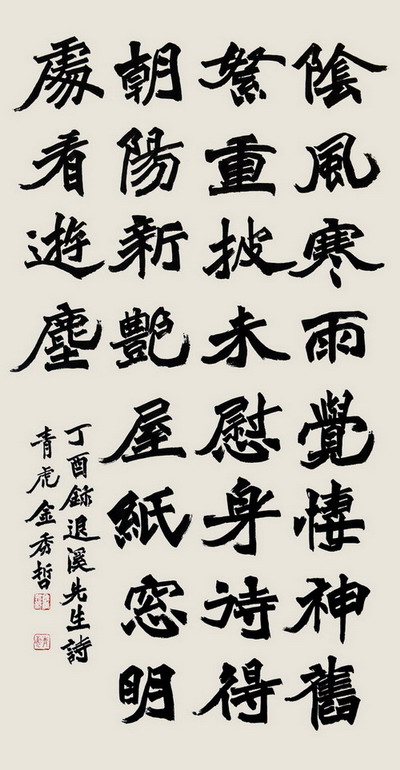 陰風寒雨覺悽神舊
絮重披未慰身待得
朝陽新艷屋紙窓明
處看遊塵
丁酉錄退溪先生詩
青虎金秀哲